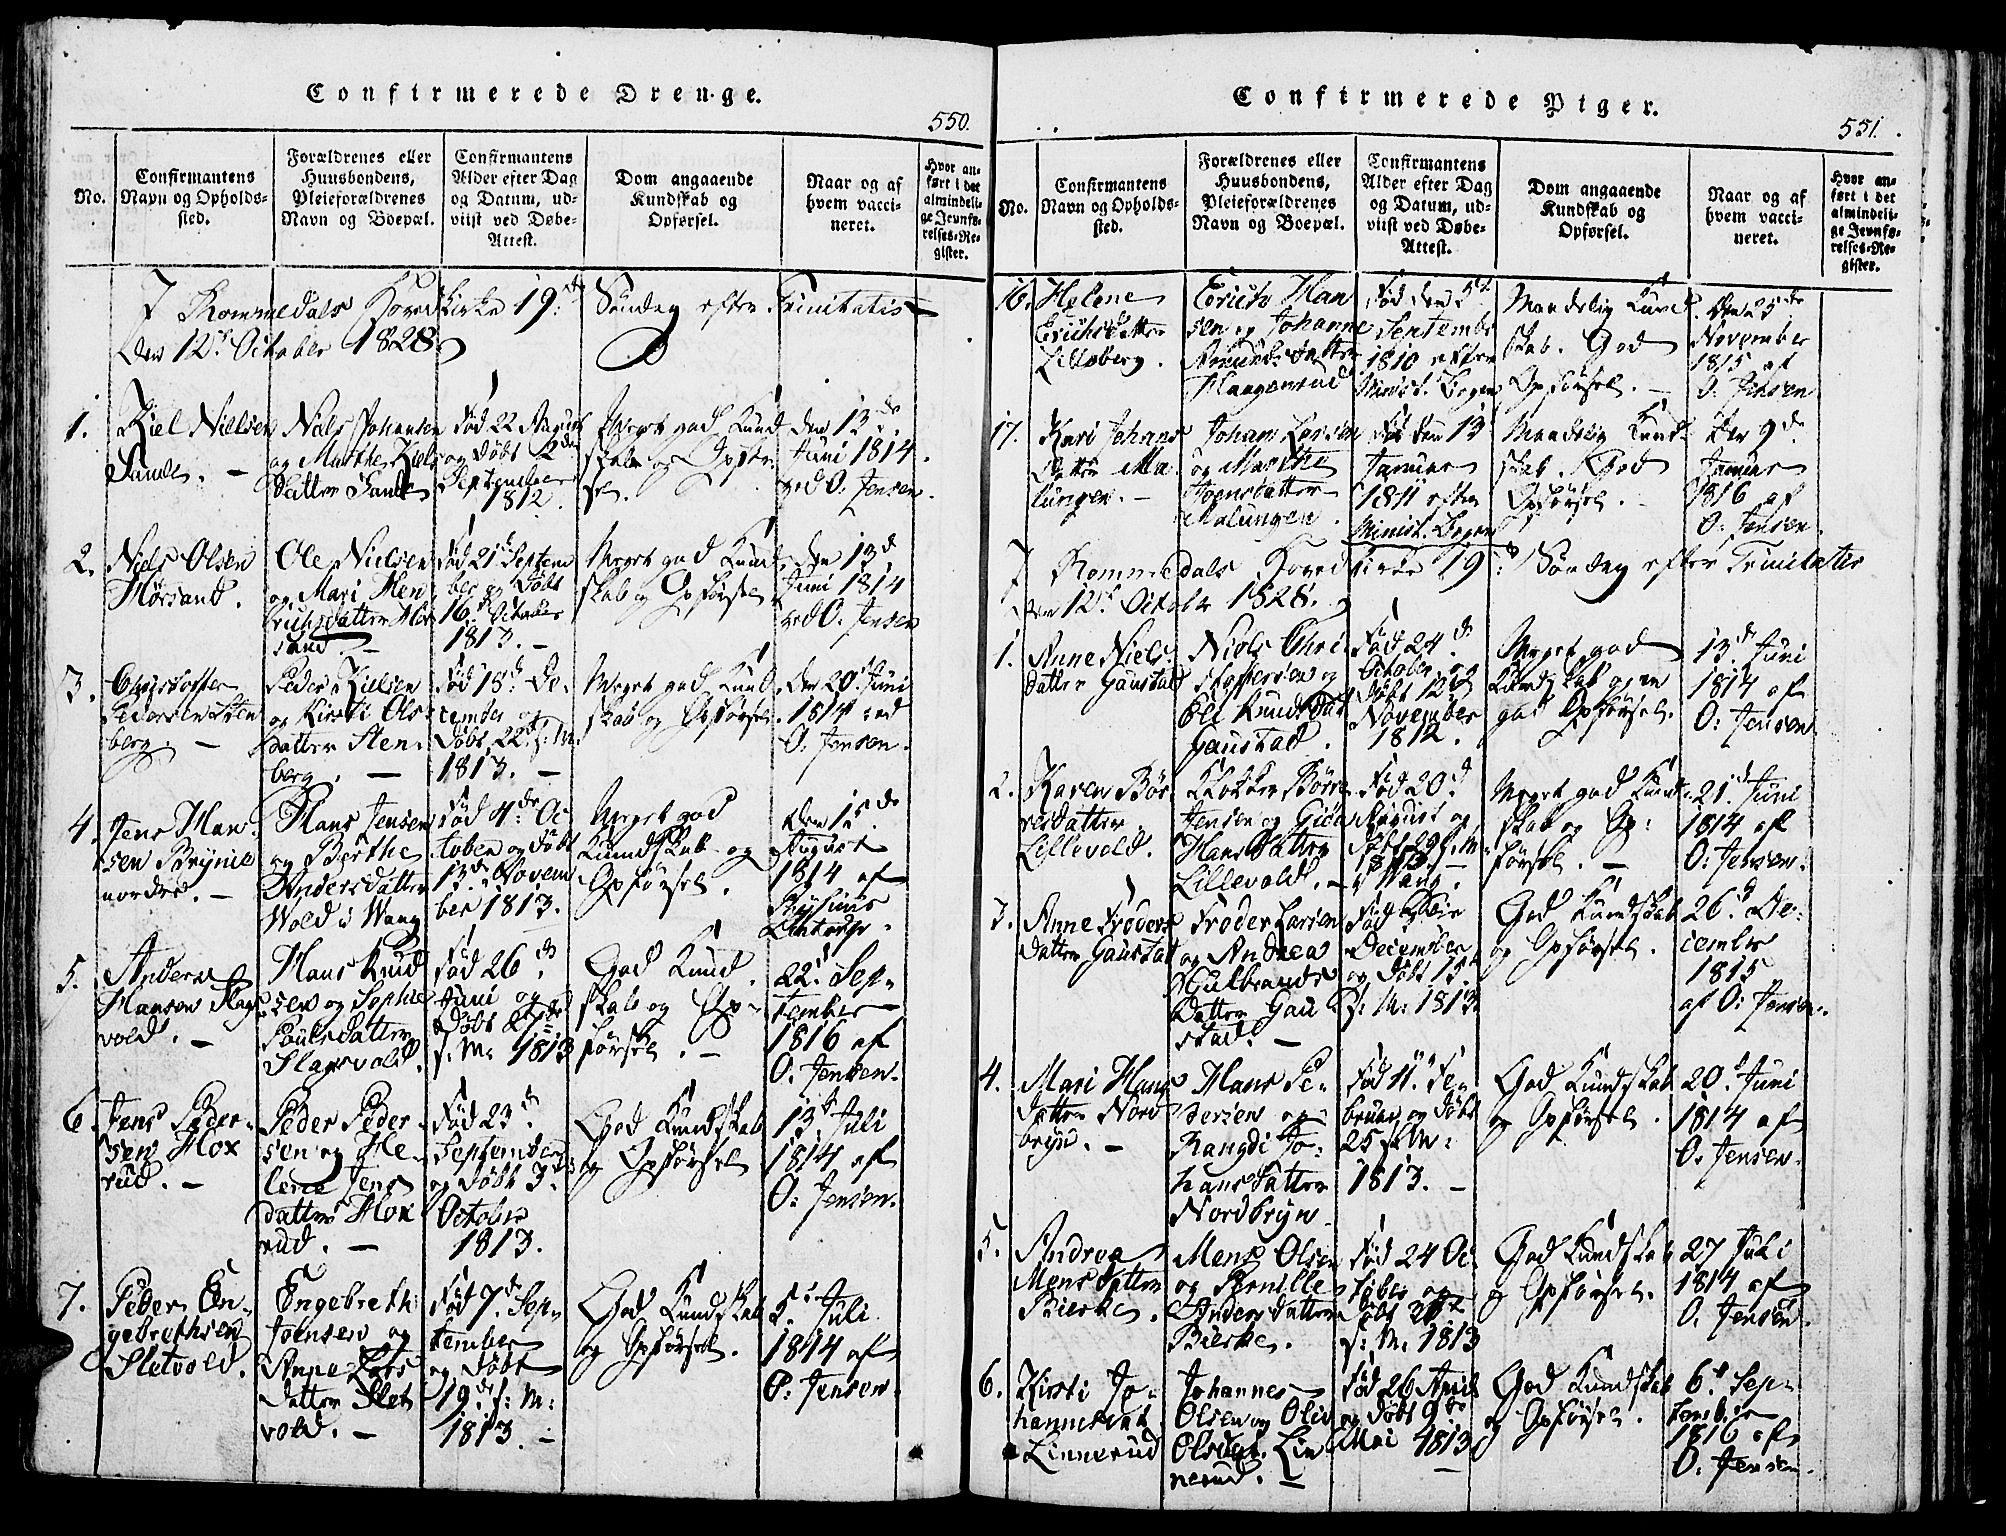 Confirmerede Drenge.
550.
No.
Confirmantens
Navn og Opholds-
sted.
Forældrenes eller
Huusbondens,
Pleieforældrenes
Navn og Boepæl.
Confirmantens
Alder efter Dag
og Datum, ud-
viist ved Døbe-
Attest.
Dom angaaende
Kundskab og
Opførsel.
Naar og af
hvem vacci-
neret.
Hvor an-
ført i det
almindeli-
ge Jevnfø-
relses-Re-
gister.
I Rommedals Hovedkirke 19de Søndag efter Trinitatis
den 12te October 1828
1.
Kiel Nielsen
Sande.
Niels Johansen
og Marthe Kiels
datter Sande
Fød 22 August
og døbt 2den
September
1812.
Meget god Kund
skab og Opfør
sel.
den 13de
Juni 1814.
ved O. Jensen.
2.
Niels Olsen
Hørsand.
Ole Nielsen
og Mari Hen
richsdatter Hør
sand.
Fød 21d Septem
ber og Døbt
16d October
1813.
Meget god Kund
skab og Opførsel
den 13d
Juni 1814
ved O. Jensen
3.
Christopher
Pedersen Sten
berg
Peder Kielsen
og Kirsti Ols
datter Sten-
berg.
Fød 18d De-
cember og
Døbt 22d s: M:
1813.
Meget god Kund
skab og Opførsel
den 20d Juni
1814 ved
O. Jensen.
4.
Jens Han-
sen Brynie
nordre.
Hans Jensen
og Berthe
Andersdatter
Wold i Wang
Fød 4de Oc
tober og døbt
13de Novem
ber 1813.
Meget god
Kundskab og
Opførsel.
den 15de
August
1814 af
5.
Anders
Hansen Slags
vold.
Hans Knud
sen og Sophie
Poulsdatter
Slagsvold.
Fød 26d
Juni og
Døbt
s: M: 1813
God Kund
skab og Op-
førsel.
22d Sep-
tember
1816 af
O. Jensen.
6.
Jens Peder-
sen Mox
rud.
Peder Peder
sen og He-
lene Jens
datter Mox
rud.
Fød 23d
September
og døbt 3d
October
1813.
God Kundskab
og Opførsel
13d Juli
1814 af
O: Jensen.
7.
Peder En-
gebrethsen
Sletvold.
Engebreth
Joensen og
Anne Lars
datter Slet
vold.
Fød 7de Sep-
tember
og døbt
19de s: M:
1813.
God Kundskab
og Opførsel.
5d Juli
1814 af
O: Jensen.
Confirmerede Piger.
551.
No.
Confirmantens
Navn og Opholds-
sted.
Forældrenes eller
Huusbondens,
Pleieforældrenes
Navn og Boepæl.
Confirmantens
Alder efter Dag
og Datum, ud-
viist ved Døbe-
Attest.
Dom angaaende
Kundskab og
Opførsel.
Naar og af
hvem vacci-
neret.
Hvor an-
ført i det
almindeli-
ge Jevnfø-
relses-Re-
gister.
16.
Helene
Erichsdatter
Lilleberg.
Erich Han
sen og Johanne
Amundsdatter
Haugenrud
Fød den 5d
Septemb:
1810 efter
Minist. Bogen
Maadelig Kund
skab. God
Opførsel.
den 25de
November
1815 af
O. Jensen
17.
Kari Johans
datter Ma
lungen.
Johan Larsen
og Marthe
Joensdatter
Malungen.
Fød den 13
Januar
1811 efter
Minist. Bogen
Maadelig Kund
skab. God
Opførsel.
Den 9d
Januar
1816 af
O. Jensen
I Rommedals Hovedkirke 19de Søndag efter Trinitatis
den 12te October 1828.
1.
Anne Niels
datter Gaustad
Niels Chri
stophersen og
Eli Knudsdat
Gaustad.
Fød 24de
October og
Døbt 12d
November
1812.
Meget god
Kundskab og en
god Opførsel.
13de Juni
1814 af
O: Jensen
2.
Karen Bør
resdatter
Lillevold.
Klokker Børre
Jensen og Giøa
Hansdatter
Lillevold.
Fød 20d
August og
døbt 29 s: M:
1813
i Wang.
Meget god Kund
skab og Op:
førsel.
21de Juni
1814 af
O: Jensen.
3.
Anne Frøders
datter Gaustad
Frøder Larsen
og Andrea
Gulbrands
Datter Gau
stad.
Fød
December
og døbt 15d
s: M: 1813
God Kundskab
og Opførsel.
26d De-
cember
1815
af O: Jensen.
4.
Mari Hans
datter Nord
bryn.
Hans Pe-
dersen og
Rangdi Jo-
hansdatter
Nordbryn
Fød 11. Fe-
bruar og døbt
25 s: M:
1813.
God Kundskab
og Opførsel.
20d Juni
1814 af
O. Jensen.
5.
Andrea
Mensdatter
Bierke.
Mens Olsen
og Pernille
Andersdatter
Bierke.
Fød 24 Oc
tober og
døbt
s: M: 1813
God Kundskab
og Opførsel.
27 Juli
1814 af
O. Jensen.
6.
Kirsti Jo-
hannesdat.
Linnerud
Johannes
Olsen og Oliv
Olsdat. Lin
nerud.
Fød 26 April
og døbt 9de
Mai 1813
God Kundskab
og Opførsel.
6d Sep-
tember
1816 af
O. Jensen.